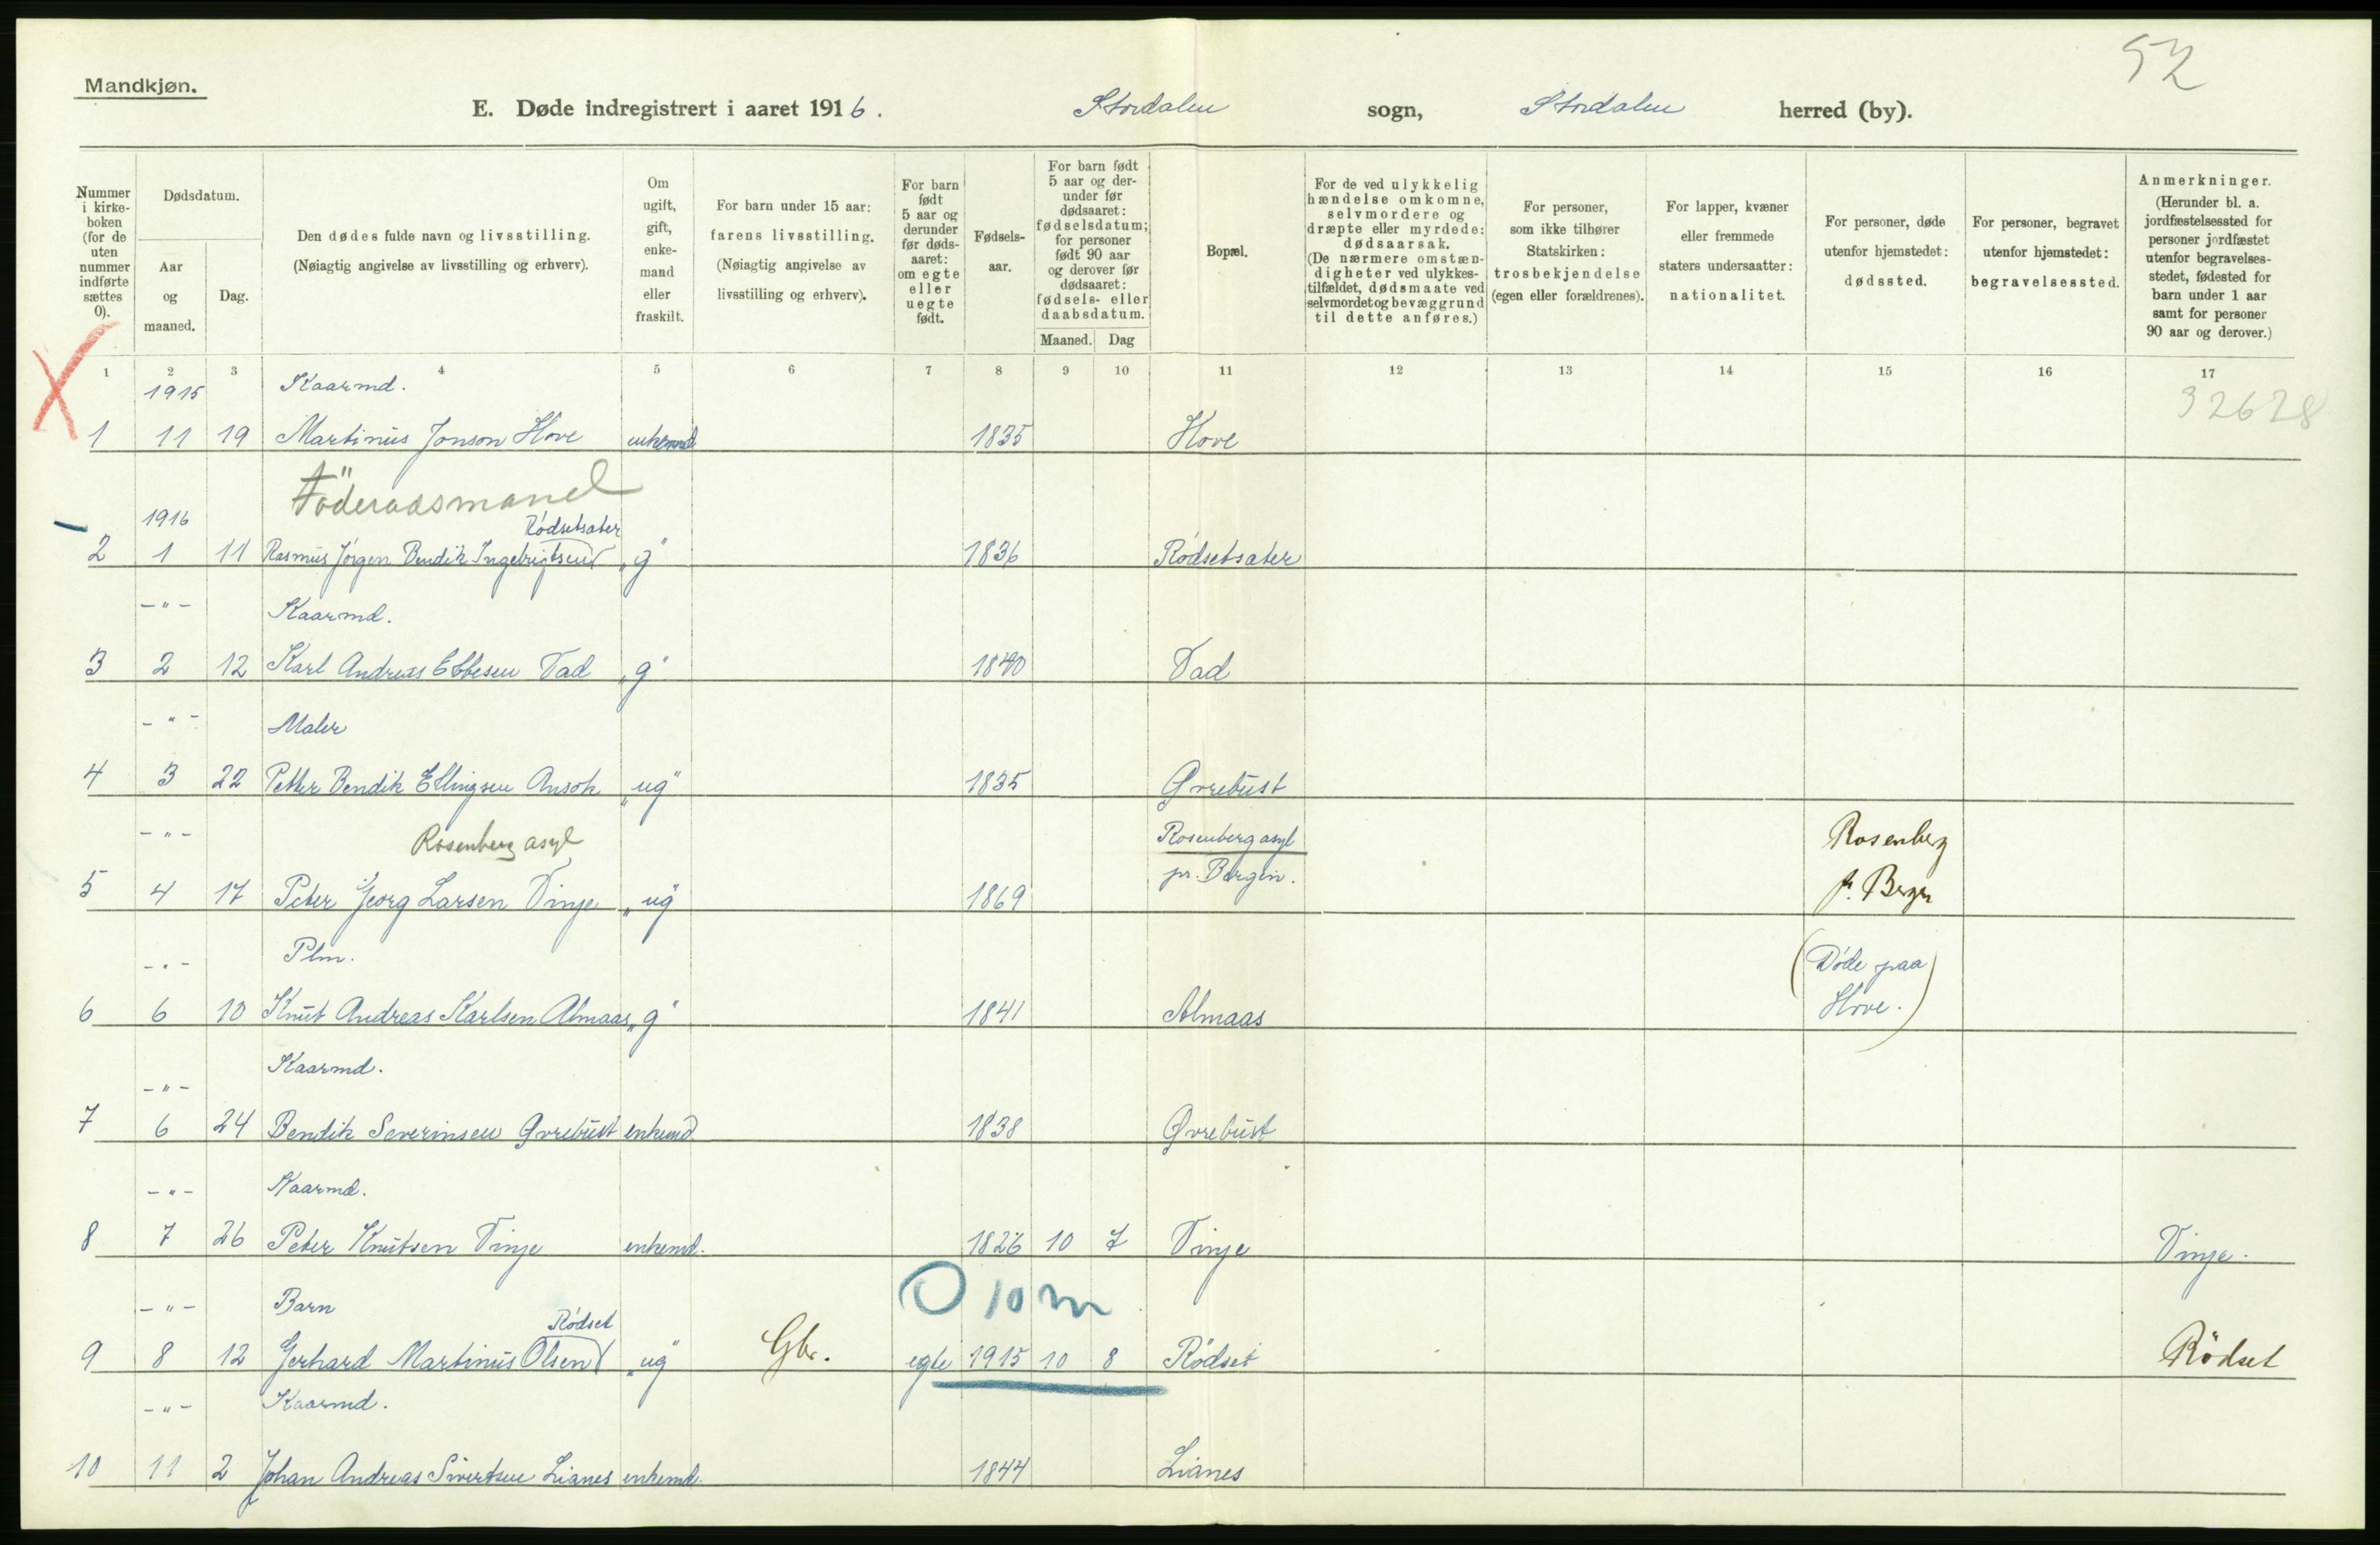 52
Mandkjøn.
E. Døde indregistrert i aaret 1916. Stordalen sogn, Stordalen herred (by).
Nummer i kirkeboken (for de uten nummer indførte sættes 0).
Dødsdatum.
Aar og maaned.
Dag.
Den dødes fulde navn og livsstilling. (Nøiagtig angivelse av livsstilling og erhverv).
Om ugift, gift, enkemand eller fraskilt.
For barn under 15 aar: farens livsstilling. (Nøiagtig angivelse av livsstilling og erhverv).
For barn født 5 aar og derunder før dødsaaret: om egte eller uegte født.
Fødselsaar.
For barn født 5 aar og derunder før dødsaaret: fødselsdatum; for personer født 90 aar og derover før dødsaaret: fødsels- eller daabsdatum.
Maaned. Dag
Bopæl.
For de ved ulykkelig hændelse omkomne, selvmordere og dræpte eller myrdede: dødsaarsak. (De nærmere omstændigheter ved ulykkestilfældet, dødsmaate ved selvmordet og bevæggrund til dette anføres.)
For personer, som ikke tilhører Statskirken: trosbekjendelse (egen eller forældrenes).
For lapper, kvæner eller fremmede staters undersaatter: nationalitet.
For personer, døde utenfor hjemstedet: dødssted.
For personer, begravet utenfor hjemstedet: begravelsessted.
Anmerkninger. (Herunder bl. a. jordfæstelsessted for personer jordfæstet utenfor begravelsesstedet, fødested for barn under 1 aar samt for personer 90 aar og derover.)
1 2 3 4 5 6 7 8 9 10 11 12 13 14 15 16 17
1915 Kaarmd. 32628
1 11 19 Martinus Jonson Hove enkemd 1835 Hove
Föderaasmand
1916 Rödsetsæter
2 1 11 Rasmus Jörgen Bendik Ingebrigtsen "g" 1836 Rödsetsæter
-"- Kaarmd.
3 2 12 Karl Andreas Ebbesen Vad "g" 1840 Vad
-"- Maler
4 3 22 Petter Bendik Ellingsen Ansok "ug" 1835 Øvrebust
-"- Rosenberg asyl Rosenberg asyl Rosenberg
pr. Bergen. p. Bergen
5 4 17 Peter Georg Larsen Vinje "ug" 1869
-"- Plm. (Döde paa
6 6 10 Knut Andreas Karlsen Almaas "g" 1841 Almaas Hove.)
-"- Kaarmd.
7 6 24 Bendik Severinsen Øvrebust enkemd 1838 Øvrebust
-"- Kaarmd.
8 7 26 Peter Knutsen Vinje enkemd. 1826 10 7 Vinje Vinje.
-"- Barn 0 10 m
Rödset
9 8 12 Gerhard Martinus Olsen "ug" Gbr. egte 1915 10 8 Rödset Rödset
-"- Kaarmd.
10 11 2 Johan Andreas Sivertsen Lianes enkemd. 1844 Lianes